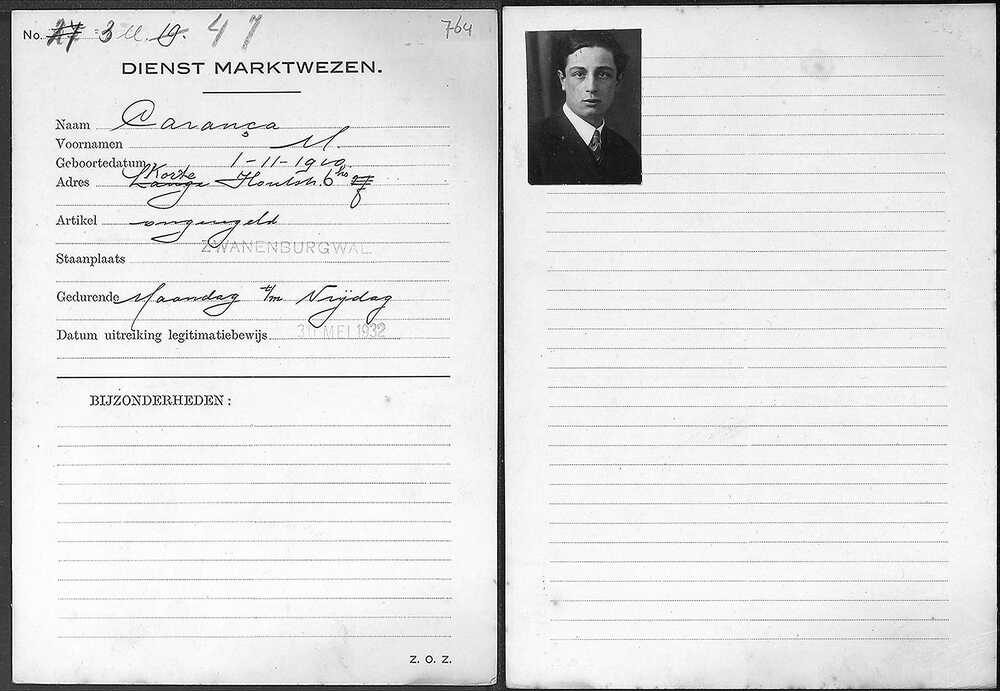 No. 3 M. 19. 47
764
DIENST MARKTWEZEN.
Naam Carança
Voornamen M.
Geboortedatum 1-11-1910.
Korte
Adres Lange Houtstr. 6 hs
Artikel ongeregeld
ZWANENBURGWAL.
Staanplaats
Gedurende Maandag t/m Vrijdag
Datum uitreiking legitimatiebewijs 30 MEI 1932
BIJZONDERHEDEN:
Z. O. Z.